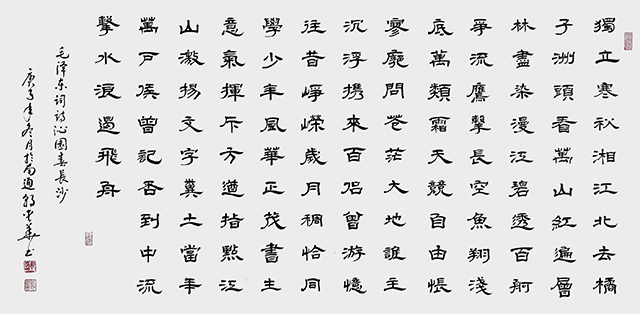 獨立寒秋湘江北去橘
子洲頭看萬山紅遍層
林盡染漫江碧透百舸
爭流鷹擊長空魚翔淺
底萬類霜天競自由悵
寥廓問蒼茫大地誰主
沉浮攜來百侶曾游憶
往昔崢嶸歲月稠恰同
學少年風華正茂書生
意氣揮斥方遒指點江
山激揚文字糞土當年
萬戶侯曾記否到中流
擊水浪遏飛舟
毛泽东词诗沁園春長沙
庚子年冬月於南通